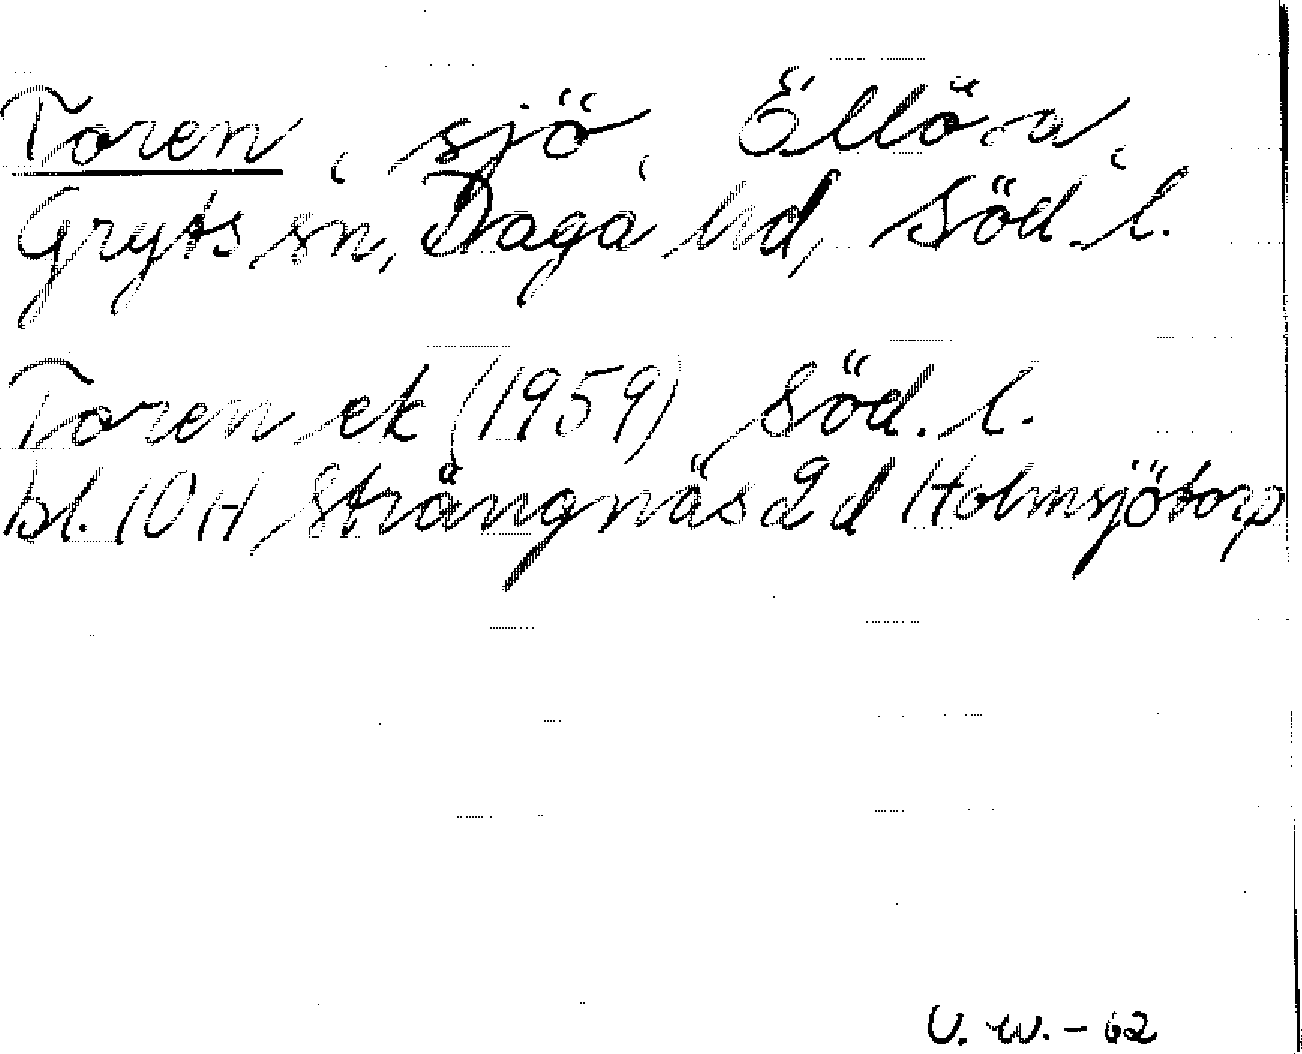 Toren, sjö, Öllöra,
Gryts sn, Daga hd, Söd. l.
Toren ek (1959) Söd. l.
bl. 10 H Strängnäs 2 d Holmsjötorp
U. W. - 62